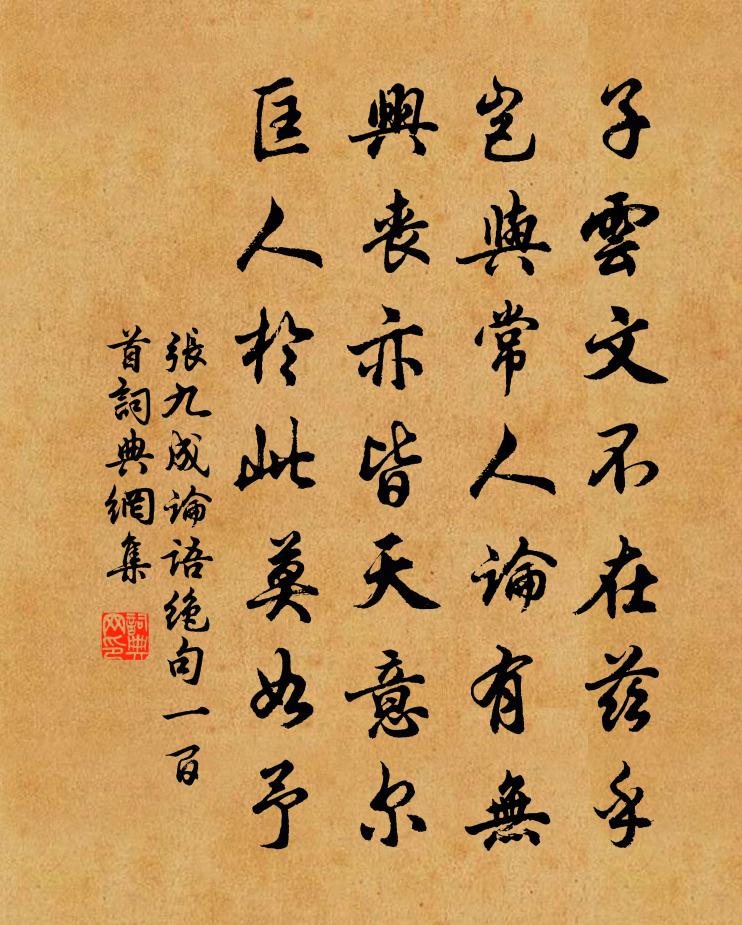 子雲文不在茲乎
豈與常人論有無
興喪亦皆天意尔
匡人於此莫如予
張九成論語絶句一百
首詞典網集
詞典網印